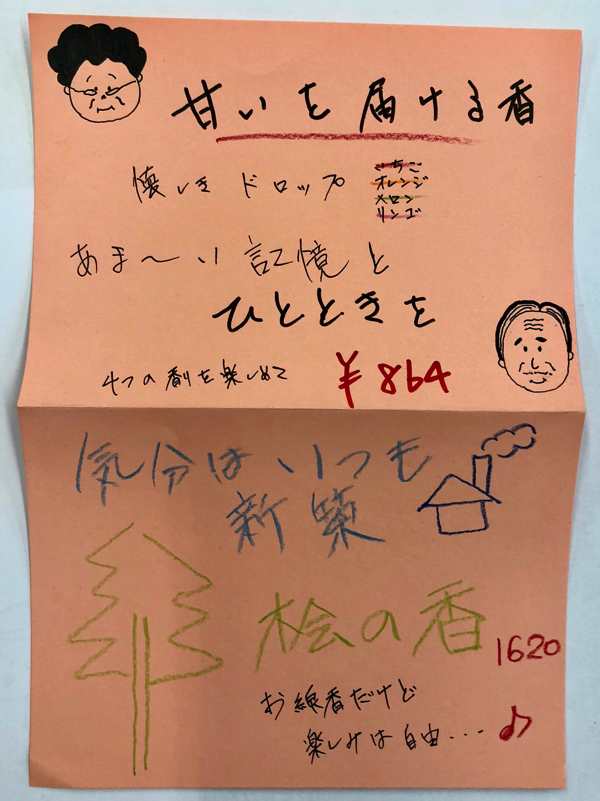 甘いを届ける香
懐しき ドロップ
いちご
オレンジ
メロン
リンゴ
あま〜い記憶と
ひとときを
4つの香りを楽しめて
¥864
気分はいつも
新築
桧の香
1620
お線香だけど
楽しみは自由･･･♪